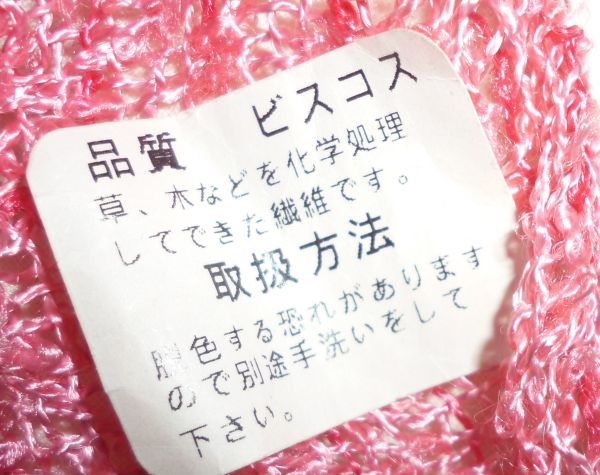 品質　ビスコス
草、木などを化学処理
してできた繊維です。
取扱方法
脱色する恐れがあります
ので別途手洗いをして
下さい。